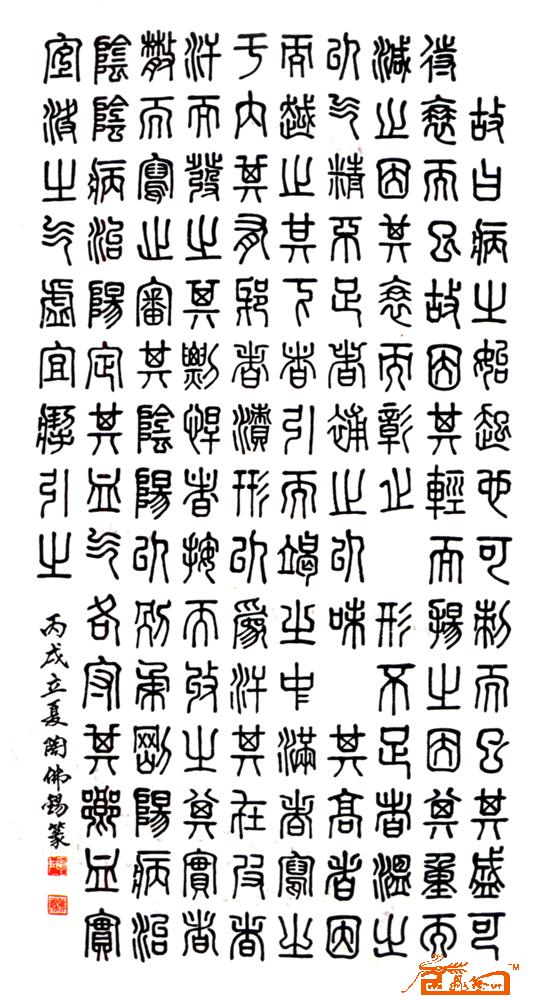 故曰病之始起也可刺而已其盛可
待衰而已故因其輕而揚之因其重而
減之因其衰而彰之 形不足者溫之
以气精不足者補之以味 其高者因
而越之其下者引而竭之中滿者寫之
于內其有邪者漬形以爲汗其在皮者
汗而發之其慓悍者按而收之其實者
散而寫之審其陰陽以別柔剛陽病治
陰陰病治陽定其血气各守其鄉血實
宜決之气虛宜掣引之
丙戌立夏陶佛錫篆